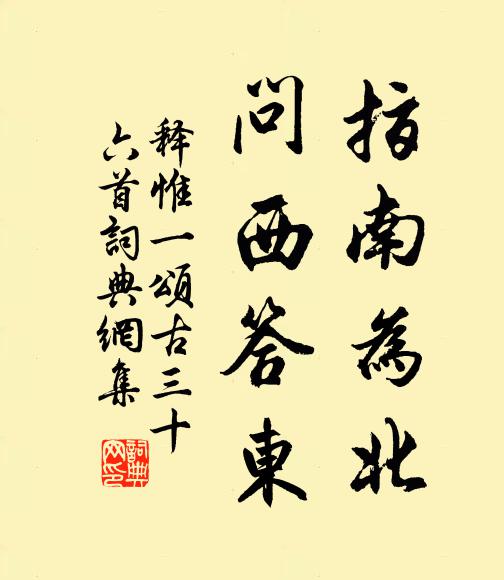 指南為北
問西答東
释惟一頌古三十
六首詞典網集
詞典網印